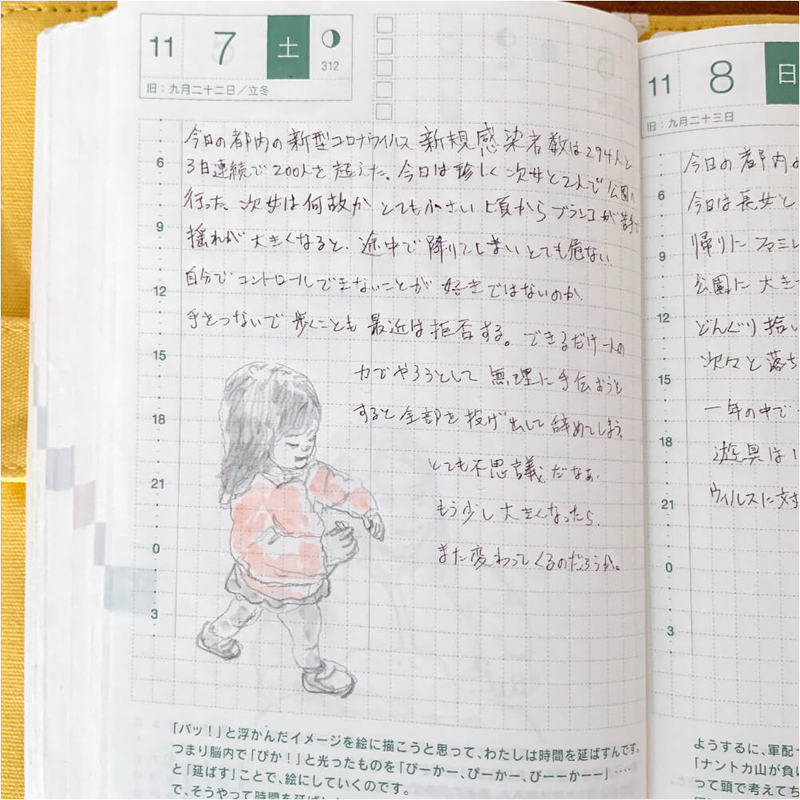 11 7 土
312
旧：九月二十二日／立冬
今日の都内の新型コロナウイルス 新規感染者数は294人と
3日連続で200人を超えた。今日は珍しく次女と2人で公園へ
行った。次女は何故かとても小さい頃からブランコが苦手で
揺れが大きくなると、途中で降りてしまいとても危ない。
自分でコントロールできないことが好きではないのか、
手をつないで歩くことも最近は拒否する。できるだけ一人の
力でやろうとして無理に手伝おうと
すると全部を投げ出して辞めてしまう。
とても不思議だなぁ。
もう少し大きくなったら、
また変わってくるのだろうか。
6
9
12
15
18
21
0
3
「バッ！」と浮かんだイメージを絵に描こうと思って、わたしは時間を延ばすんです。
つまり脳内で「ぴか！」と光ったものを「ぴーかー、ぴーかー、ぴーーかーー」‥‥
と「延ばす」ことで、絵にしていくのです。
で、そうやって時間を延ばし
11 8 日
旧：九月二十三日
今日の都内の
今日は長女と
帰りにファミレ
公園に大き
どんぐり拾い
次々と落ち
一年の中で
遊具は
ウィルスに対
6
9
12
15
18
21
0
3
ようするに、軍配
「ナントカ山が負け
って頭で考えてち